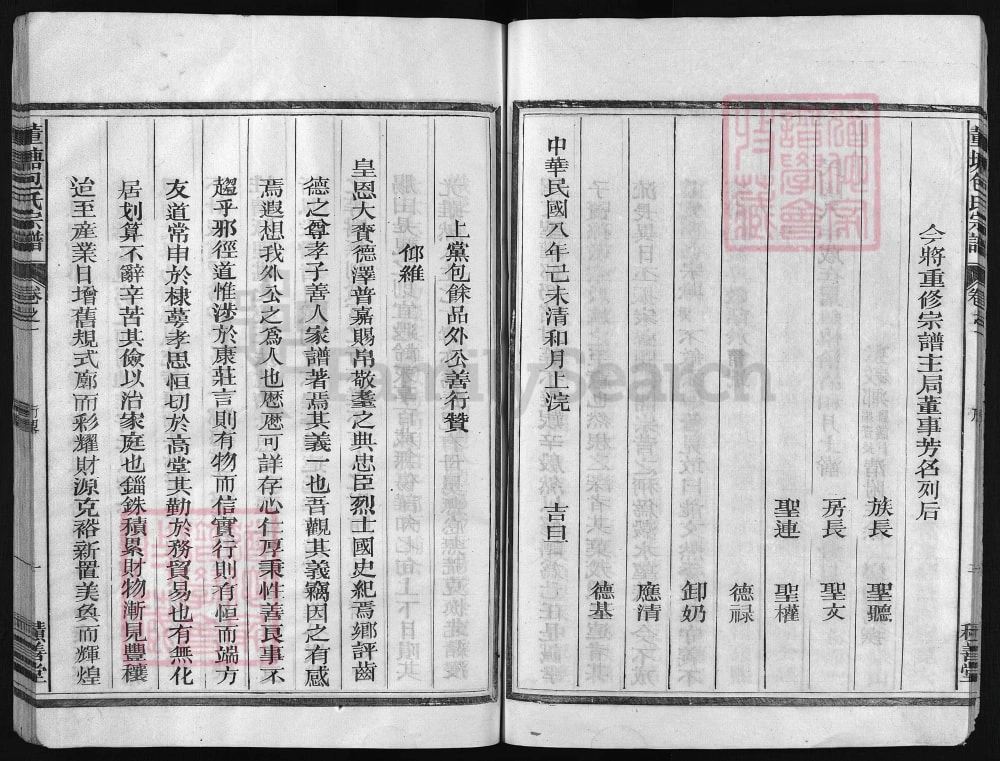 今將重修宗譜主局董事芳名列后
族長 聖聽
房長 聖文
聖連 聖權
德祿
卸奶
應清
德基
中華民國八年己未清和月上浣 吉旦
上黨包餘品外公善行贊
仰維
皇恩大賚德澤普嘉賜帛敬耋之典忠臣烈士國史紀焉鄉評齒
德之尊孝子善人家譜著焉其義一也吾觀其義竊因之有感
焉遐想我外公之爲人也愿愿可詳存心仁厚秉性善良事不
趨乎邪徑道惟涉於康莊言則有物而信實行則有恒而端方
友道常申於棣萼孝思恒切於高堂其勤於務貿易也有無化
居划算不辭辛苦其儉以治家庭也錙銖積累財物漸見豐穰
迨至產業日增舊規式廓而彩耀財源克裕新置美奐而輝煌
董塘包氏宗譜 卷之一
積善堂
FamilySearch